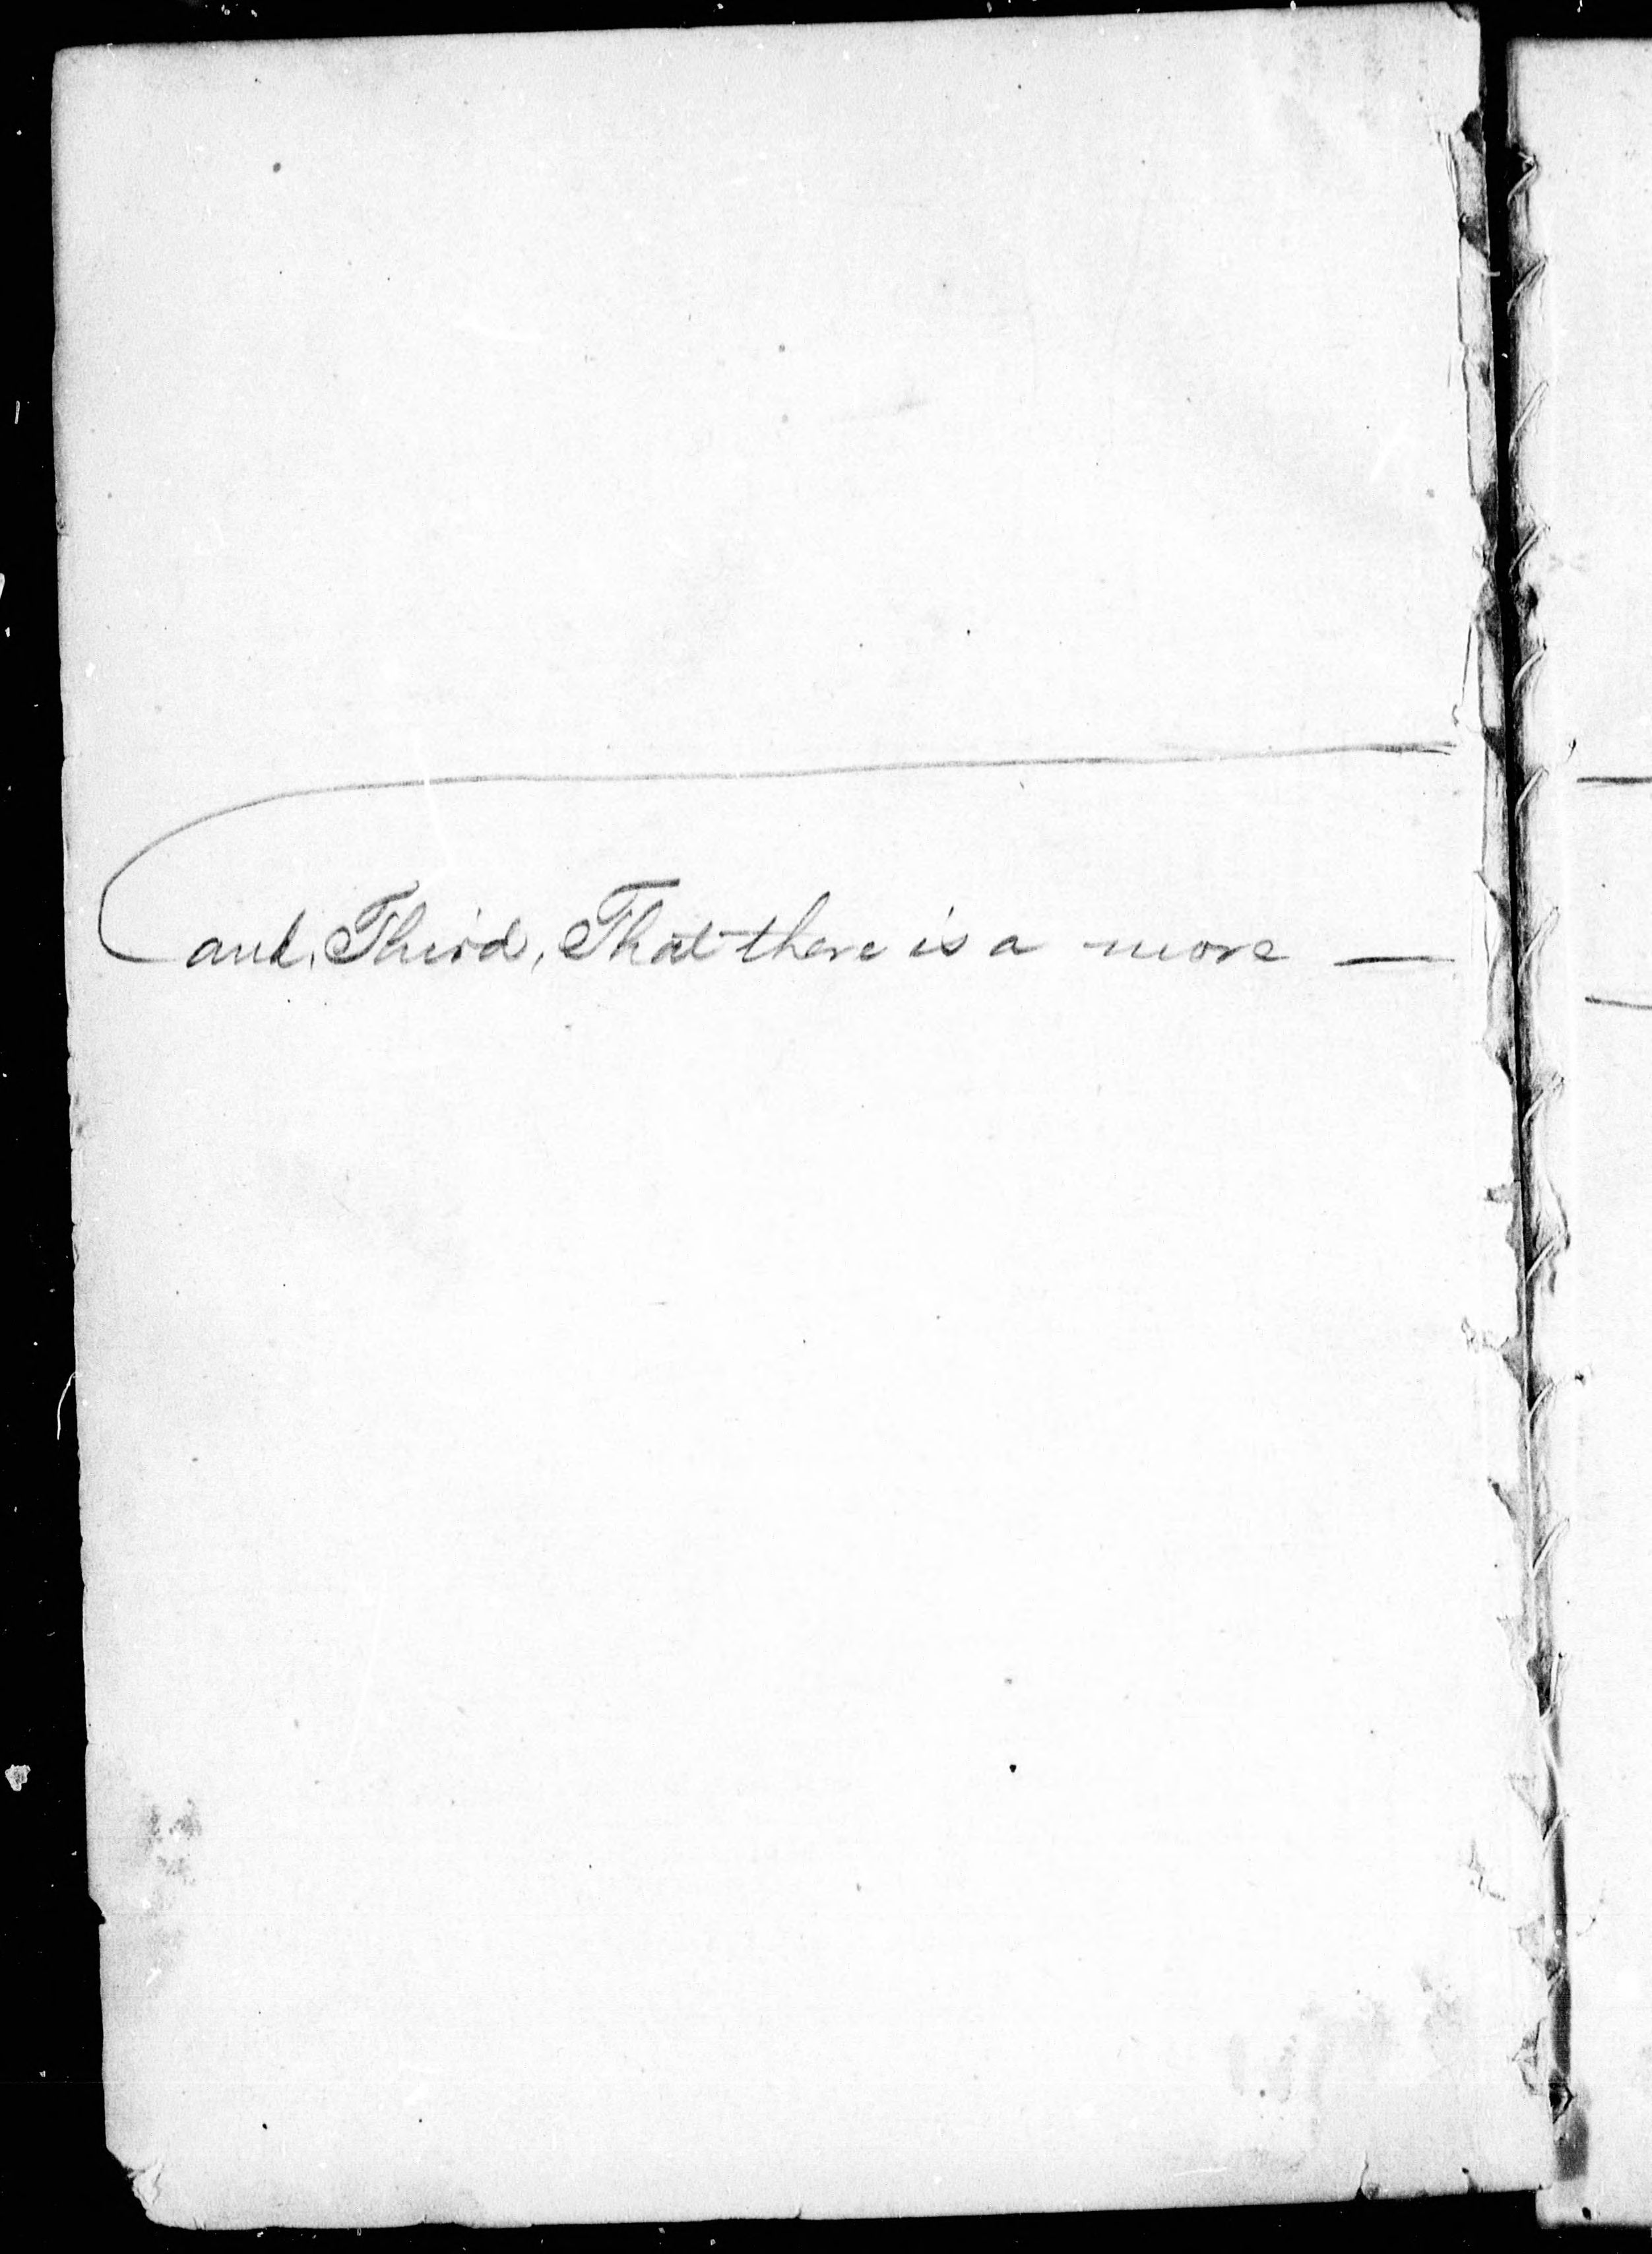 and, Third, That there is a more —